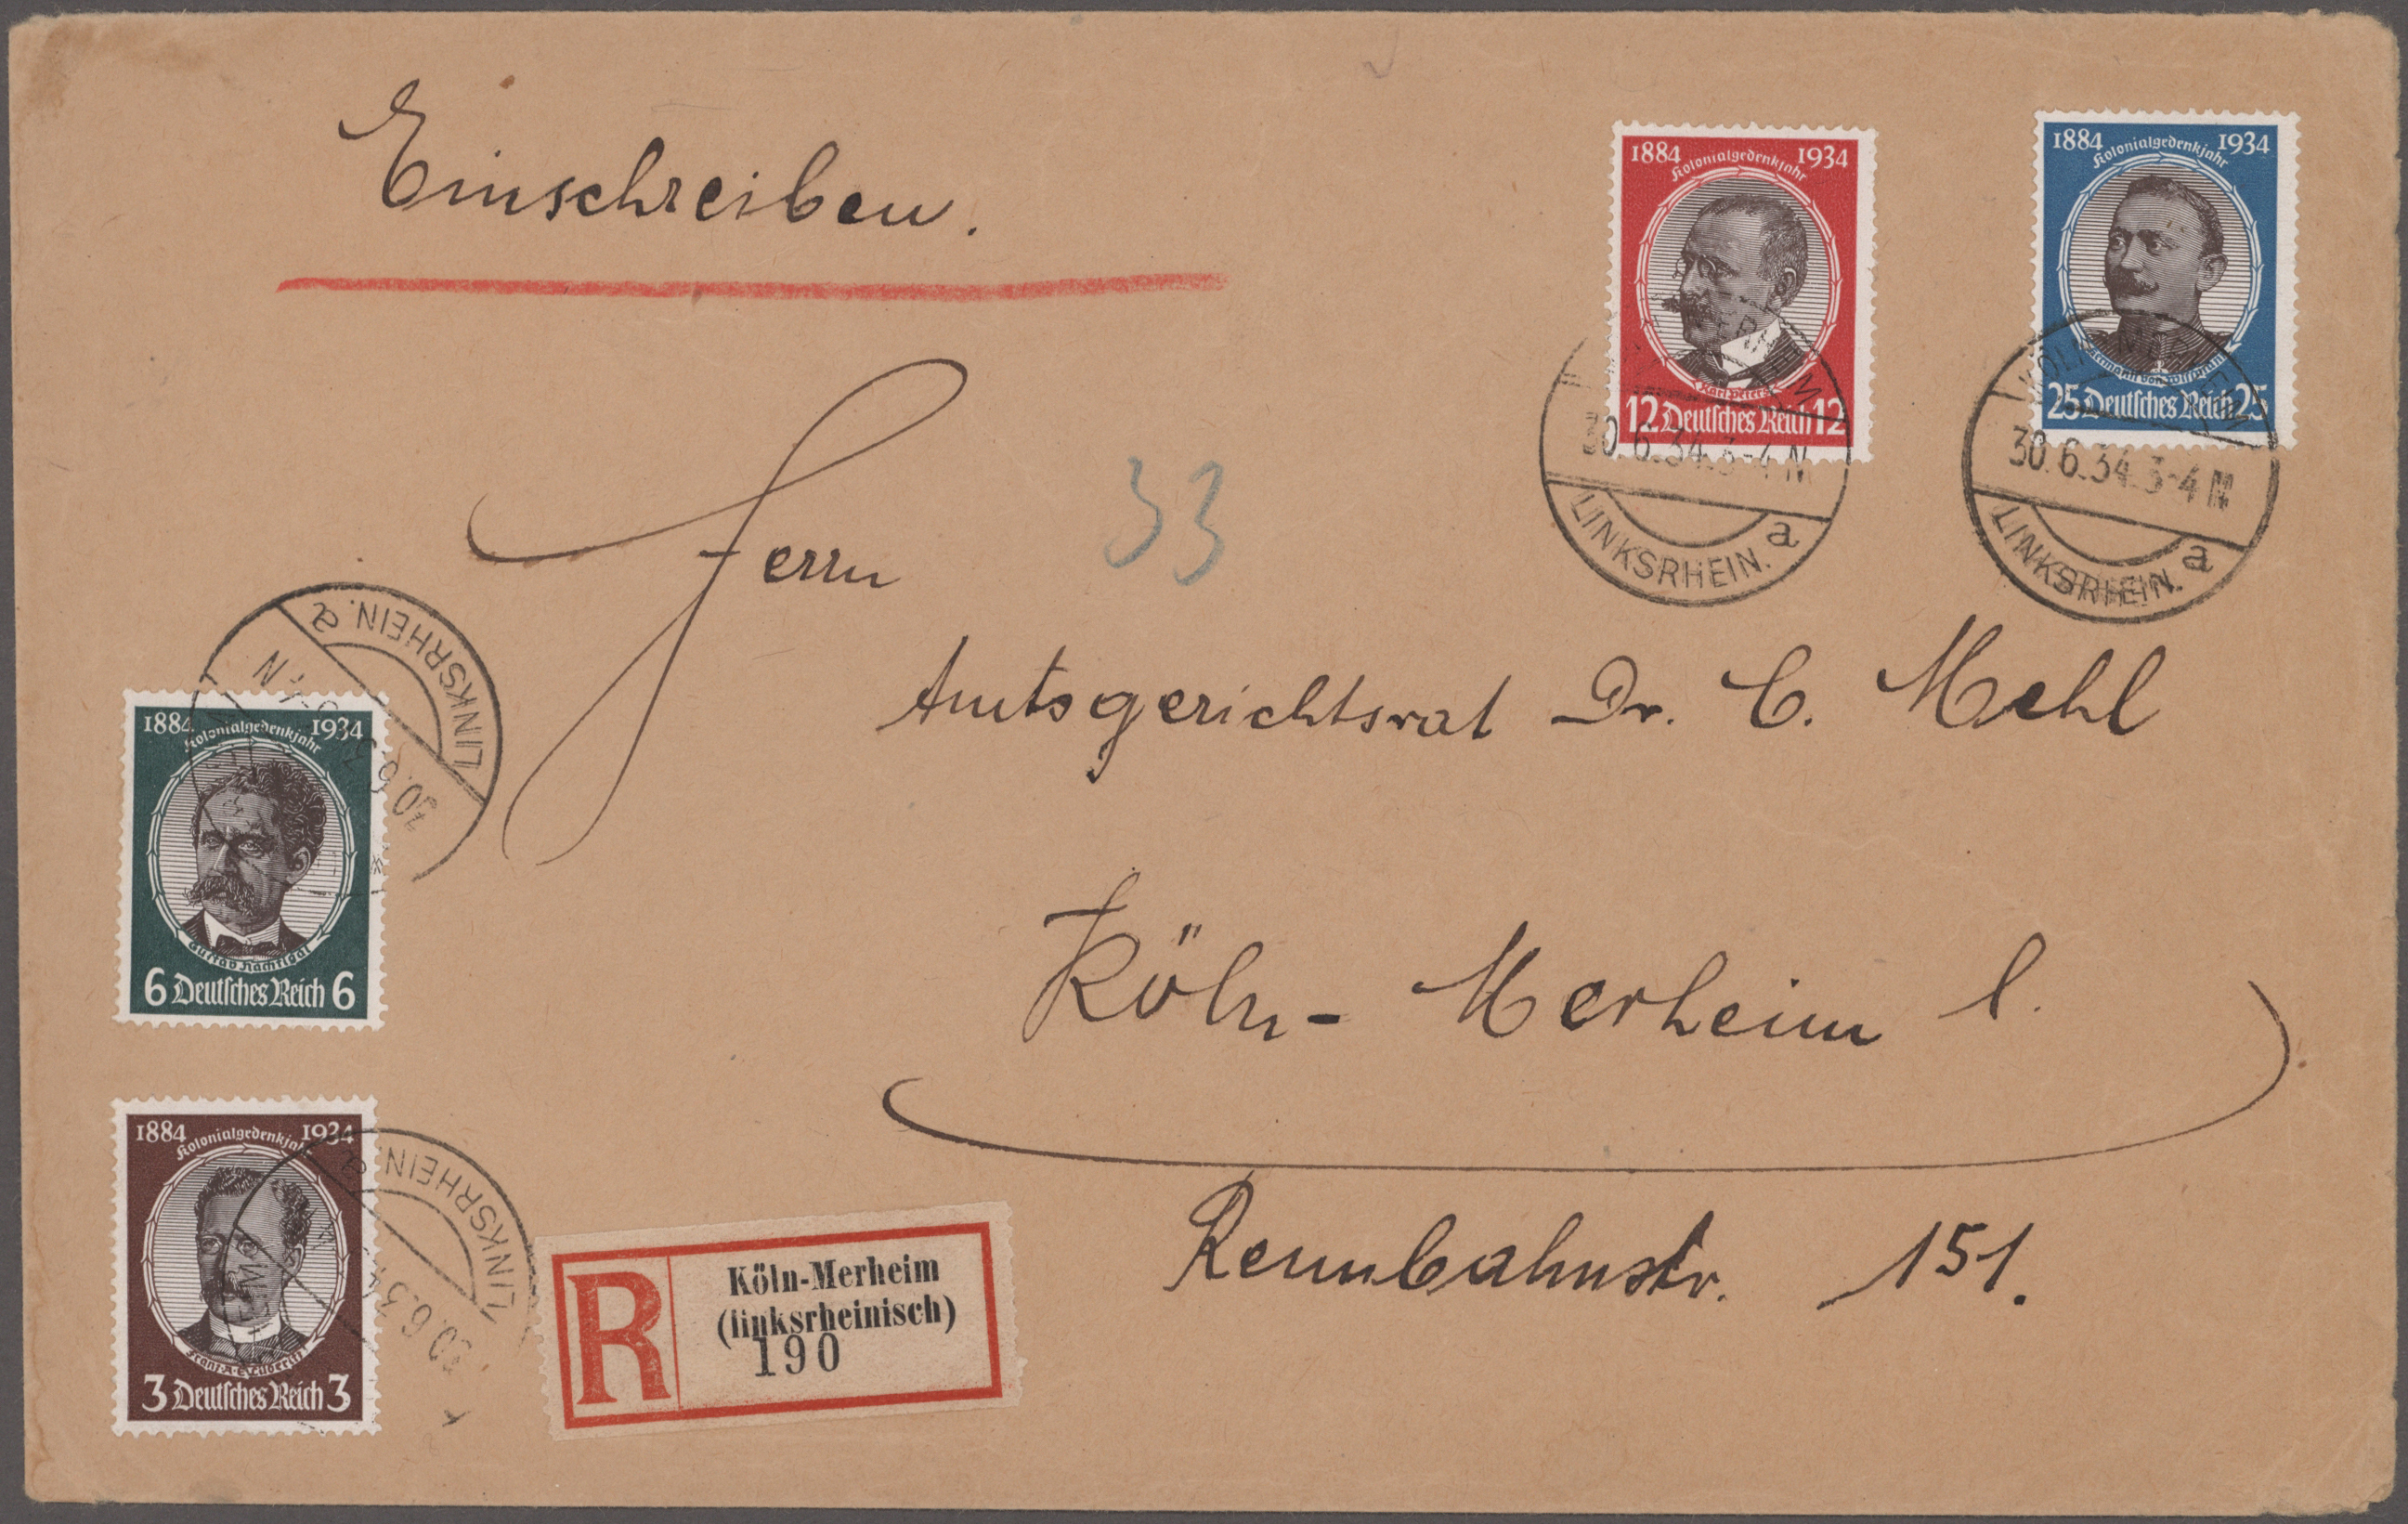 Einschreiben.
1884 1934
Kolonialgedenkjahr
Karl Peters
12 Deutsches Reich 12
1884 1934
Kolonialgedenkjahr
Hermann von Wissmann
25 Deutsches Reich 25
30.6.34.3-4 N
LINKSRHEIN. a
KÖLN-MERHEIM
30.6.34.3-4 N
LINKSRHEIN. a
33
Herrn
Amtsgerichtsrat Dr. C. Mehl
Köln-Merheim l.
Rennbahnstr. 151.
LINKSRHEIN. a
1884 1934
Kolonialgedenkjahr
Gustav Nachtigal
6 Deutsches Reich 6
1884 1934
Kolonialgedenkjahr
Franz A. E. Lüderitz
3 Deutsches Reich 3
LINKSRHEIN. a
30.6.34
R
Köln-Merheim
(linksrheinisch)
190